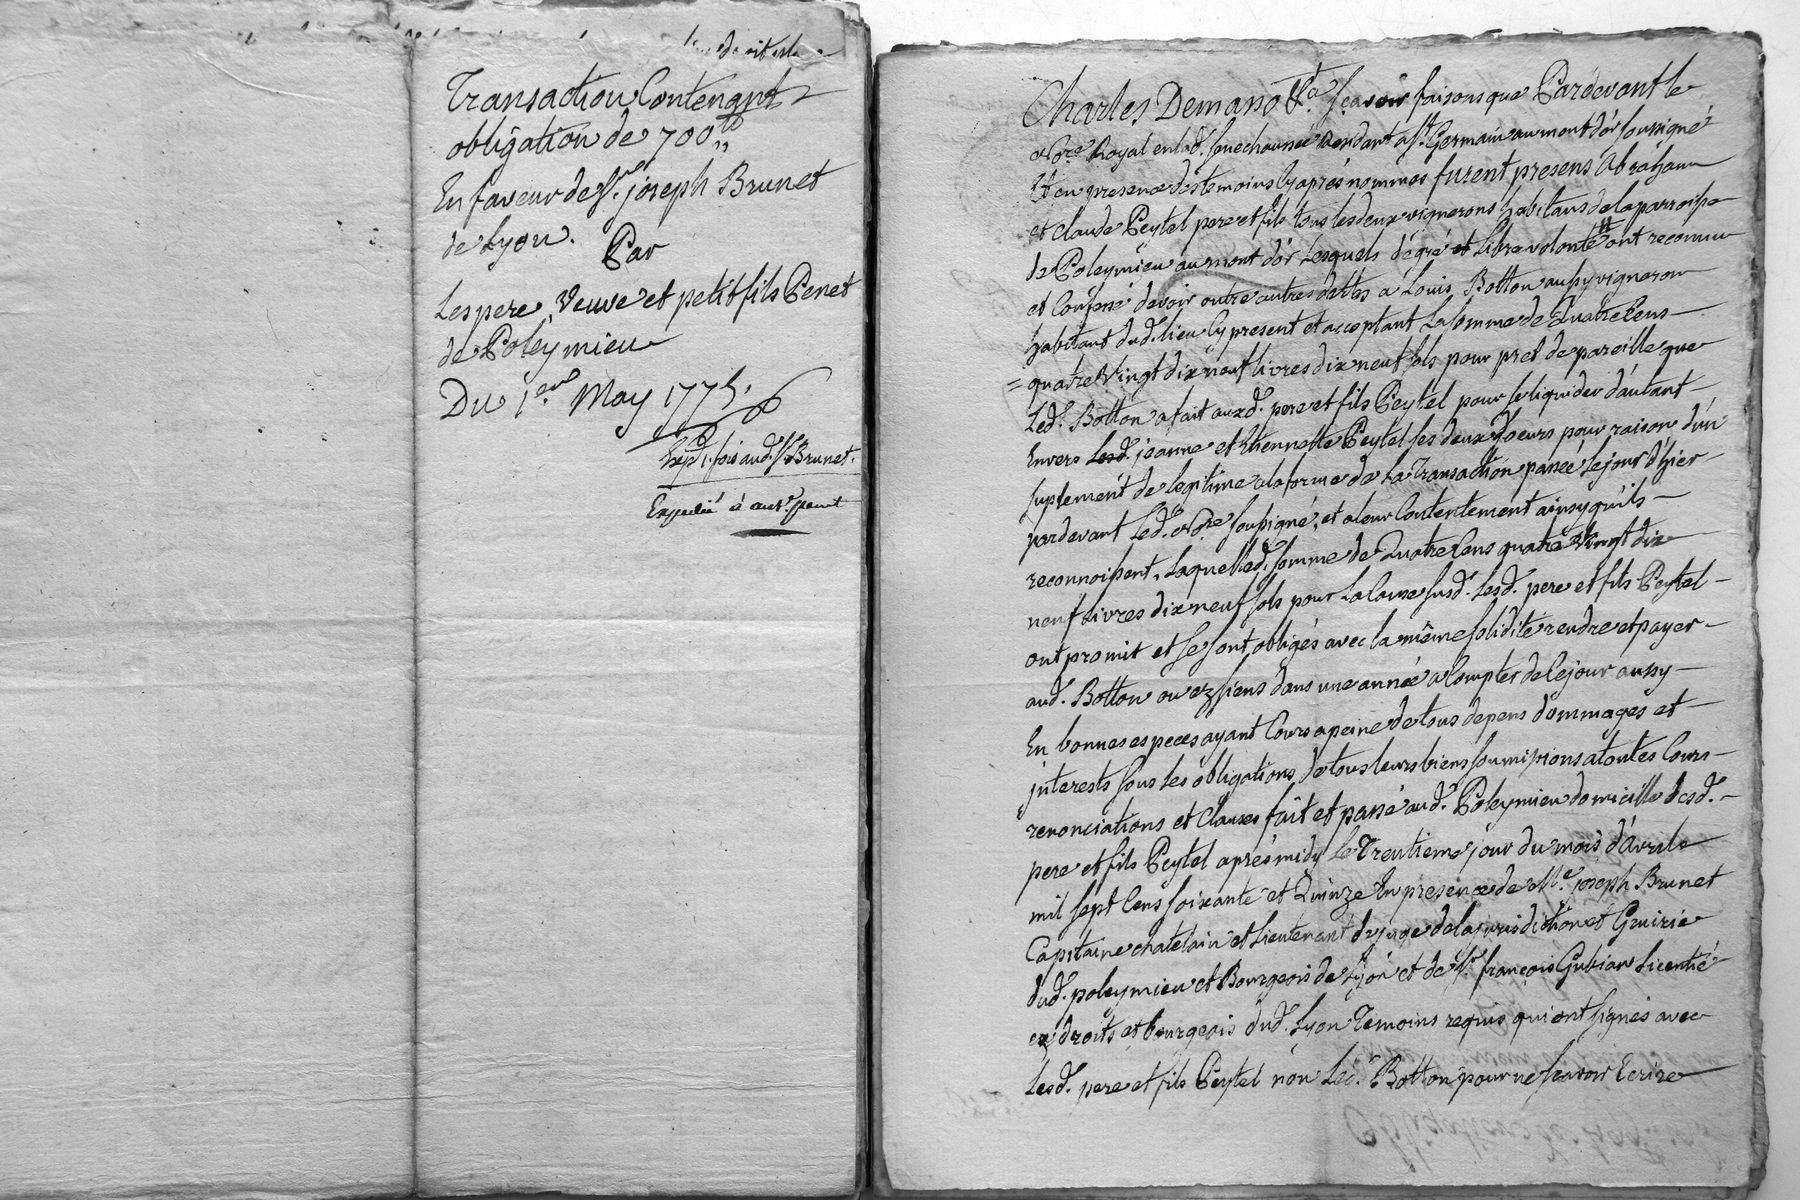 Transaction Contenant
obligation de 700ᵗᵗ
En faveur de Sr. joseph Brunet
de Lyon.
Par
Les pere, Veuve et petit fils Penet
de Poleymieu
Du 1er. May 1775.
Exp. 1. fois aud. Sr Brunet.
Expedié à aut. penet
Charles Demano &ca. Scavoir faisons que Pardevant le
Nore. Royal en lad. senechaussée residant a St. Germain au mont d'or soussigné
Et en presence des temoins cy aprés nommés furent presens Abraham
et Claude Peytel pere et fils tous les deux vignerons habitans de la parroisse
de Poleymieu au mont d'or Lesquels de gré et Libre volonté ont reconnu
et Confessé devoir outre autres dettes a Louis Botton aussy vigneron
habitant dud. lieu Cy present et acceptant La somme de Quatre Cens
= quatre Vingt dix neuf livres dix neuf sols pour pret de pareille que
Led. Botton a fait auxd. pere et fils Peytel pour se liquider d'autant
Envers Lesd. jeanne et Etiennette Peytel ses deux soeurs pour raison d'un
suplement de legitime a la forme de La Transaction passée Le jour d'hier
pardevant Led. Nore. soussigné, et a leur Contentement ainsy qu'ils
reconnoissent, Laquelled. somme de Quatre Cens quatre Vingt dix
neuf Livres dix neuf sols pour La Cause susd. Lesd. pere et fils Peytel
ont promit et se sont obligés avec la même solidité rendre et payer
aud. Botton ou ez siens dans une année a Compter de Ce jour aussy
En bonnes especes ayant Cours a peine de tous depens dommages et
interests sous Les obligations de tous leurs biens soumissions a toutes Cours
renonciations et Clauses fait et passé aud. Poleymieu domicille desd.
pere et fils Peytel aprés midy le Trentieme jour du mois d'avril
mil sept Cens soixante et Quinze En presence de Mre. joseph Brunet
Capitaine chatelain et Lieutenant de juge de la jurisdiction et Gruirie
dud. poleymieu et Bourgeois de Lyon et de Sr. françois Gubian Licentié
ez droits et bourgeois dud. Lyon Temoins requis qui ont signés avec
Lesd. pere et fils Peytel non Led. Botton pour ne scavoir Ecrire